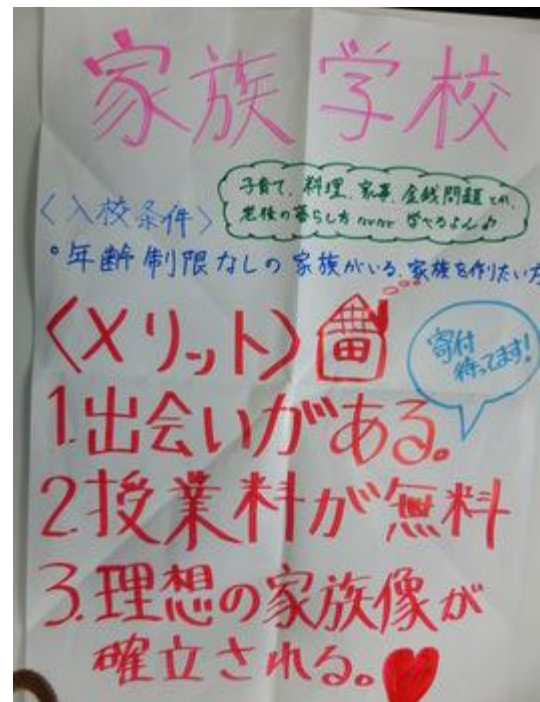 家族学校
子育て、料理、家事、金銭問題とか、
老後の暮らし方 etc 学べるよん♪
〈入校条件〉
年齢制限なしの家族がいる、家族を作りたい方
〈メリット〉
寄付
待ってます!
1.出会いがある。
2.授業料が無料
3.理想の家族像が
確立される。